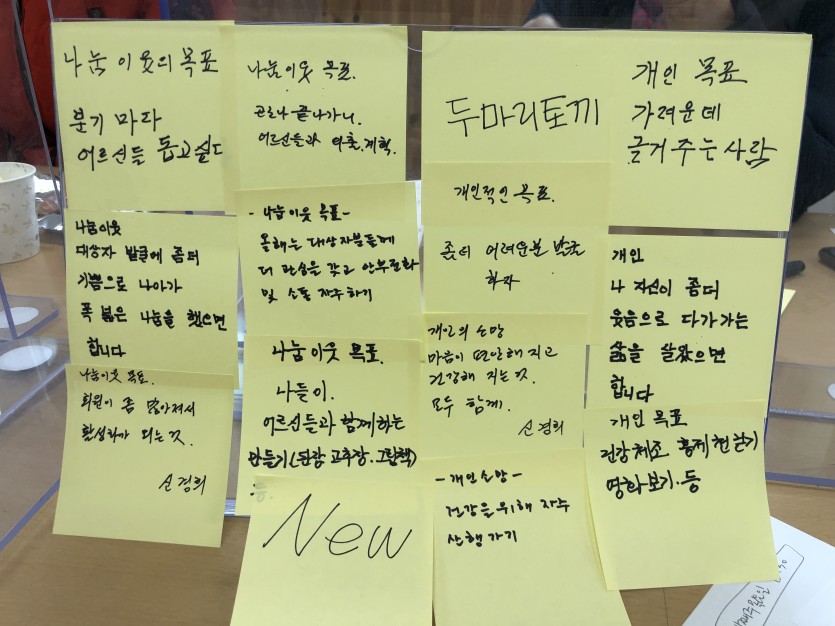 나눔이웃의 목표
분기 마다
어르선들 돕고싶다
나눔이웃
대상자 발굴에 좀더
기쁨으로 나아가
폭 넓은 나눔을 했으면
합니다
나눔이웃 목표.
회원이 좀 많아져서
활성화가 되는것.
신경희
나눔이웃 목표.
코로나 끝나가니.
어르선들과 외출.계획.
- 나눔이웃 목표 -
올해는 대상자분들께
더 관심을 갖고 안부전화
및 소통 자주하기
나눔이웃 목표.
나들이.
어르선들과 함께하는
만들기(된장 고추장.그림책)
등
New
두마리토끼
개인적인 목표.
좀더 어려운분 발굴
하자
개인의 소망
마음이 편안해 지고
건강해 지는 것.
모두 함께.
신경희
- 개인소망 -
건강을 위해 자주
산행가기
개인 목표
가려운데
긁거 주는 사람
개인
나 자신이 좀더
웃음으로 다가가는
삶을 살았으면
합니다
개인 목표
건강체조 홍제천 걷기
영화보기.등